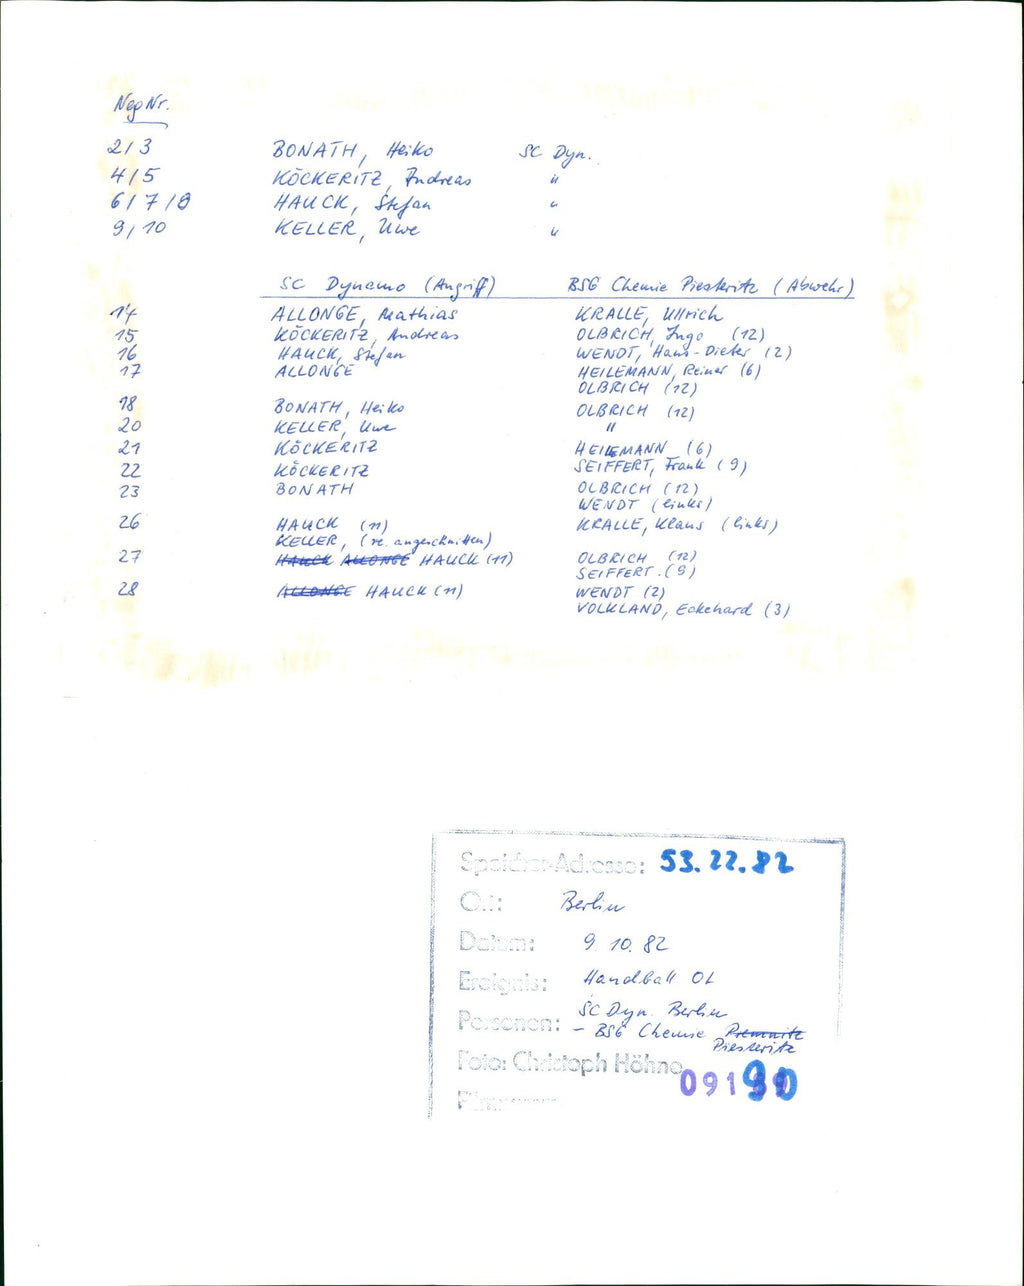 Neg Nr.
2/3 BONATH, Heiko SC Dyn.
4/5 KÖCKERITZ, Andreas "
6/7/8 HAUCK, Stefan "
9/10 KELLER, Uwe "
SC Dynamo (Angriff) BSG Chemie Piesteritz (Abwehr)
14 ALLONGE, Mathias KRALLE, Ullrich
15 KÖCKERITZ, Andreas OLBRICH, Ingo (12)
16 HAUCK, Stefan WENDT, Hans-Dieter (2)
17 ALLONGE HEILEMANN, Reiner (6)
OLBRICH (12)
18 BONATH, Heiko OLBRICH (12)
20 KELLER, Uwe "
21 KÖCKERITZ HEILEMANN (6)
22 KÖCKERITZ SEIFFERT, Frank (9)
23 BONATH OLBRICH (12)
WENDT (links)
26 HAUCK (11) KRALLE, Klaus (links)
KELLER, (re. angeschnitten)
27 HAUCK ALLONGE HAUCK (11) OLBRICH (12)
SEIFFERT. (9)
28 ALLONGE HAUCK (11) WENDT (2)
VOLKLAND, Eckehard (3)
Speicher-Adresse: 53.22.82
Ort: Berlin
Datum: 9 10. 82
Ereignis: Handball OL
Personen: SC Dyn. Berlin
- BSG Chemie Premnitz
Piesteritz
Foto: Christoph Höhne
091 90